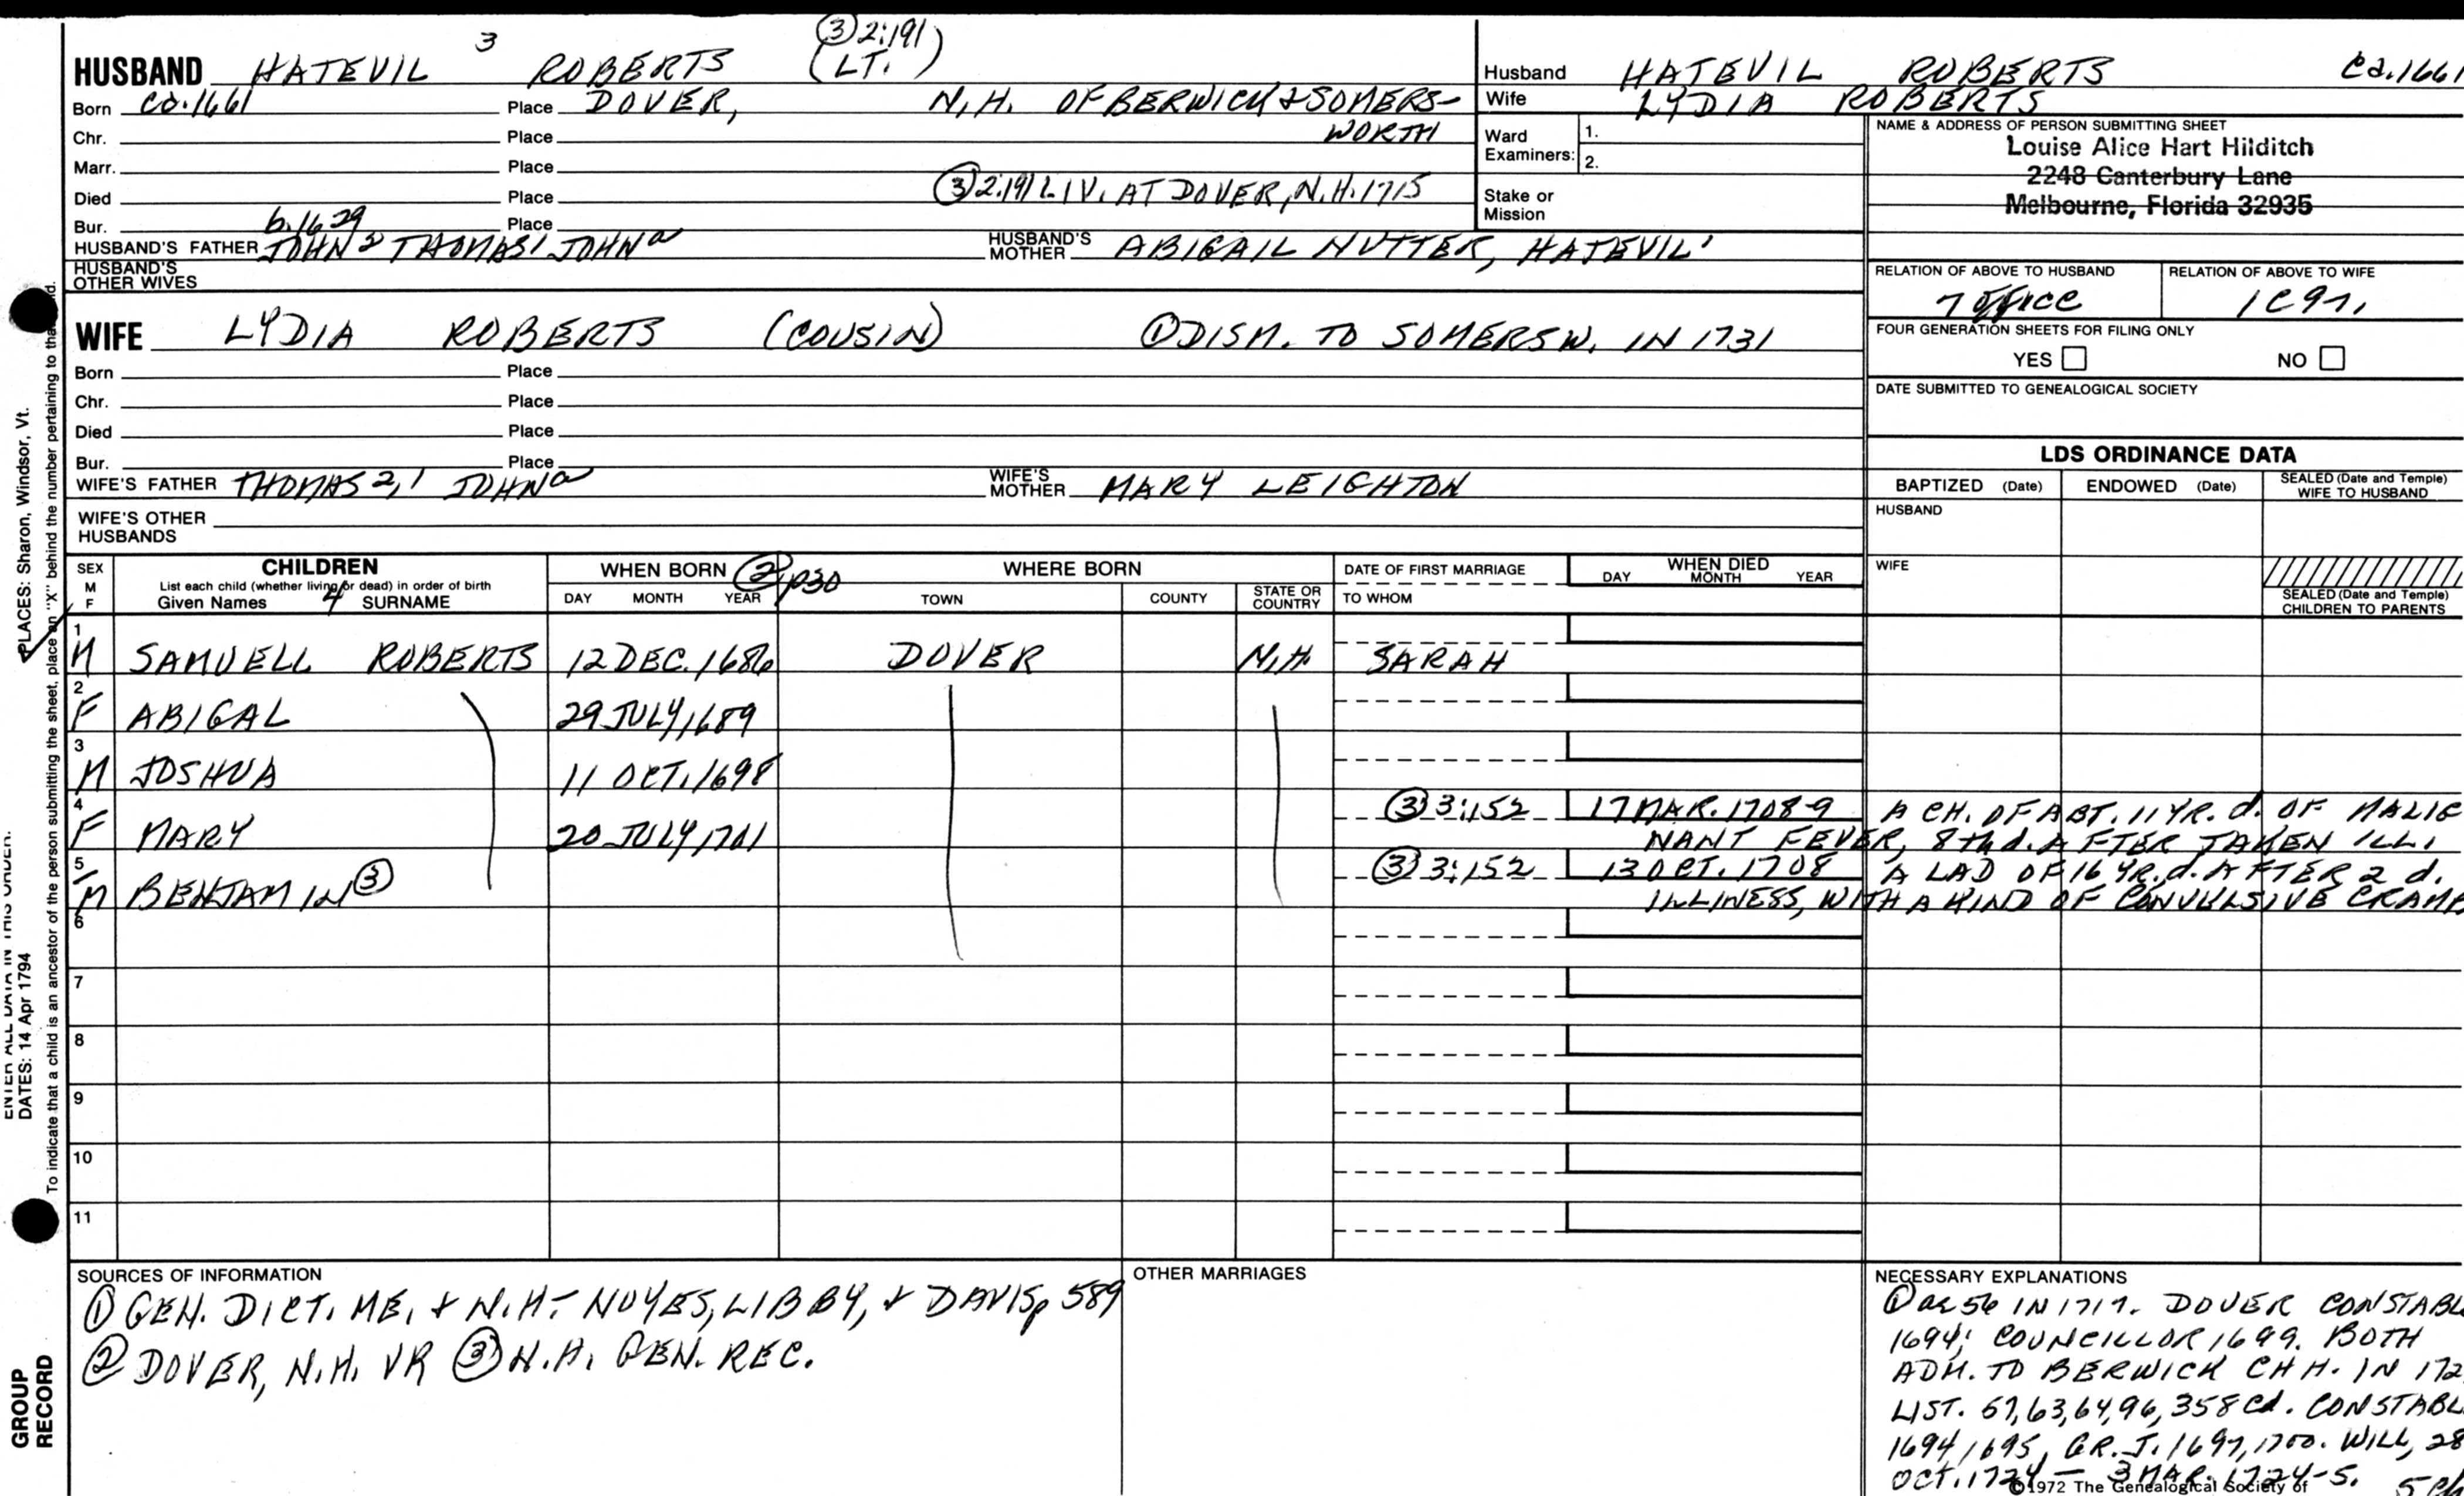 ③2:191
HUSBAND HATEVIL 3 ROBERTS (LT.)
Born ca.1661 Place DOVER, N.H. OF BERWICK & SOMERS-
Chr. Place WORTH
Marr. Place
Died Place ③2:191 LIV. AT DOVER, N.H. 1715
Bur. b.1629 Place
HUSBAND'S FATHER JOHN 2 THOMAS1 JOHNa HUSBAND'S MOTHER ABIGAIL NUTTER, HATEVIL1
HUSBAND'S OTHER WIVES
WIFE LYDIA ROBERTS (COUSIN) ①DISM. TO SOMERSW. IN 1731
Born Place
Chr. Place
Died Place
Bur. Place
WIFE'S FATHER THOMAS 2,1 JOHNa WIFE'S MOTHER MARY LEIGHTON
WIFE'S OTHER HUSBANDS
Husband HATEVIL ROBERTS ca.1661
Wife LYDIA ROBERTS
Ward Examiners: 1.
2.
Stake or Mission
NAME & ADDRESS OF PERSON SUBMITTING SHEET
Louise Alice Hart Hilditch
2248 Canterbury Lane
Melbourne, Florida 32935
RELATION OF ABOVE TO HUSBAND RELATION OF ABOVE TO WIFE
1C9r.
FOUR GENERATION SHEETS FOR FILING ONLY
YES NO
DATE SUBMITTED TO GENEALOGICAL SOCIETY
LDS ORDINANCE DATA
BAPTIZED (Date) ENDOWED (Date) SEALED (Date and Temple) WIFE TO HUSBAND
HUSBAND
WIFE
SEALED (Date and Temple) CHILDREN TO PARENTS
SEX M F CHILDREN WHEN BORN ② p30 WHERE BORN DATE OF FIRST MARRIAGE WHEN DIED
List each child (whether living or dead) in order of birth
Given Names 4 SURNAME DAY MONTH YEAR TOWN COUNTY STATE OR COUNTRY TO WHOM DAY MONTH YEAR
1 M SAMUELL ROBERTS 12 DEC. 1686 DOVER N.H. SARAH
2 F ABIGAL 29 JULY, 1689
3 M JOSHUA 11 OCT. 1698
4 F MARY 20 JULY 1701 ③ 3:152 17 MAR. 1708-9 A CH. OF ABT. 11 YR. d. OF MALIG
NANT FEVER, 8th d. AFTER TAKEN ILL.
5 M BENJAMIN ③ ③ 3:152 13 OCT. 1708 A LAD OF 16 YR. d. AFTER 2 d.
ILLINESS, WITH A KIND OF CONVULSIVE CRAMP
6
7
8
9
10
11
SOURCES OF INFORMATION
① GEN. DICT. ME. & N.H.- NOYES, LIBBY, & DAVIS p 589
② DOVER, N.H. VR ③ N.H. GEN. REC.
OTHER MARRIAGES
NECESSARY EXPLANATIONS
① ae 56 IN 1717. DOVER CONSTABL
1694; COUNCILLOR 1699. BOTH
ADM. TO BERWICK CHH. IN 172
LIST. 57, 63, 64, 96, 358 cd. CONSTABL
1694 1695, GR. J. 1697, 1700. WILL, 28
OCT. 1724 - 3 MAR. 1724-5. 5 ch
©1972 The Genealogical Society of
PLACES: Sharon, Windsor, Vt.
ENTER ALL DATA IN THIS ORDER:
DATES: 14 Apr 1794
To indicate that a child is an ancestor of the person submitting the sheet, place an "X" behind the number pertaining to that
GROUP RECORD